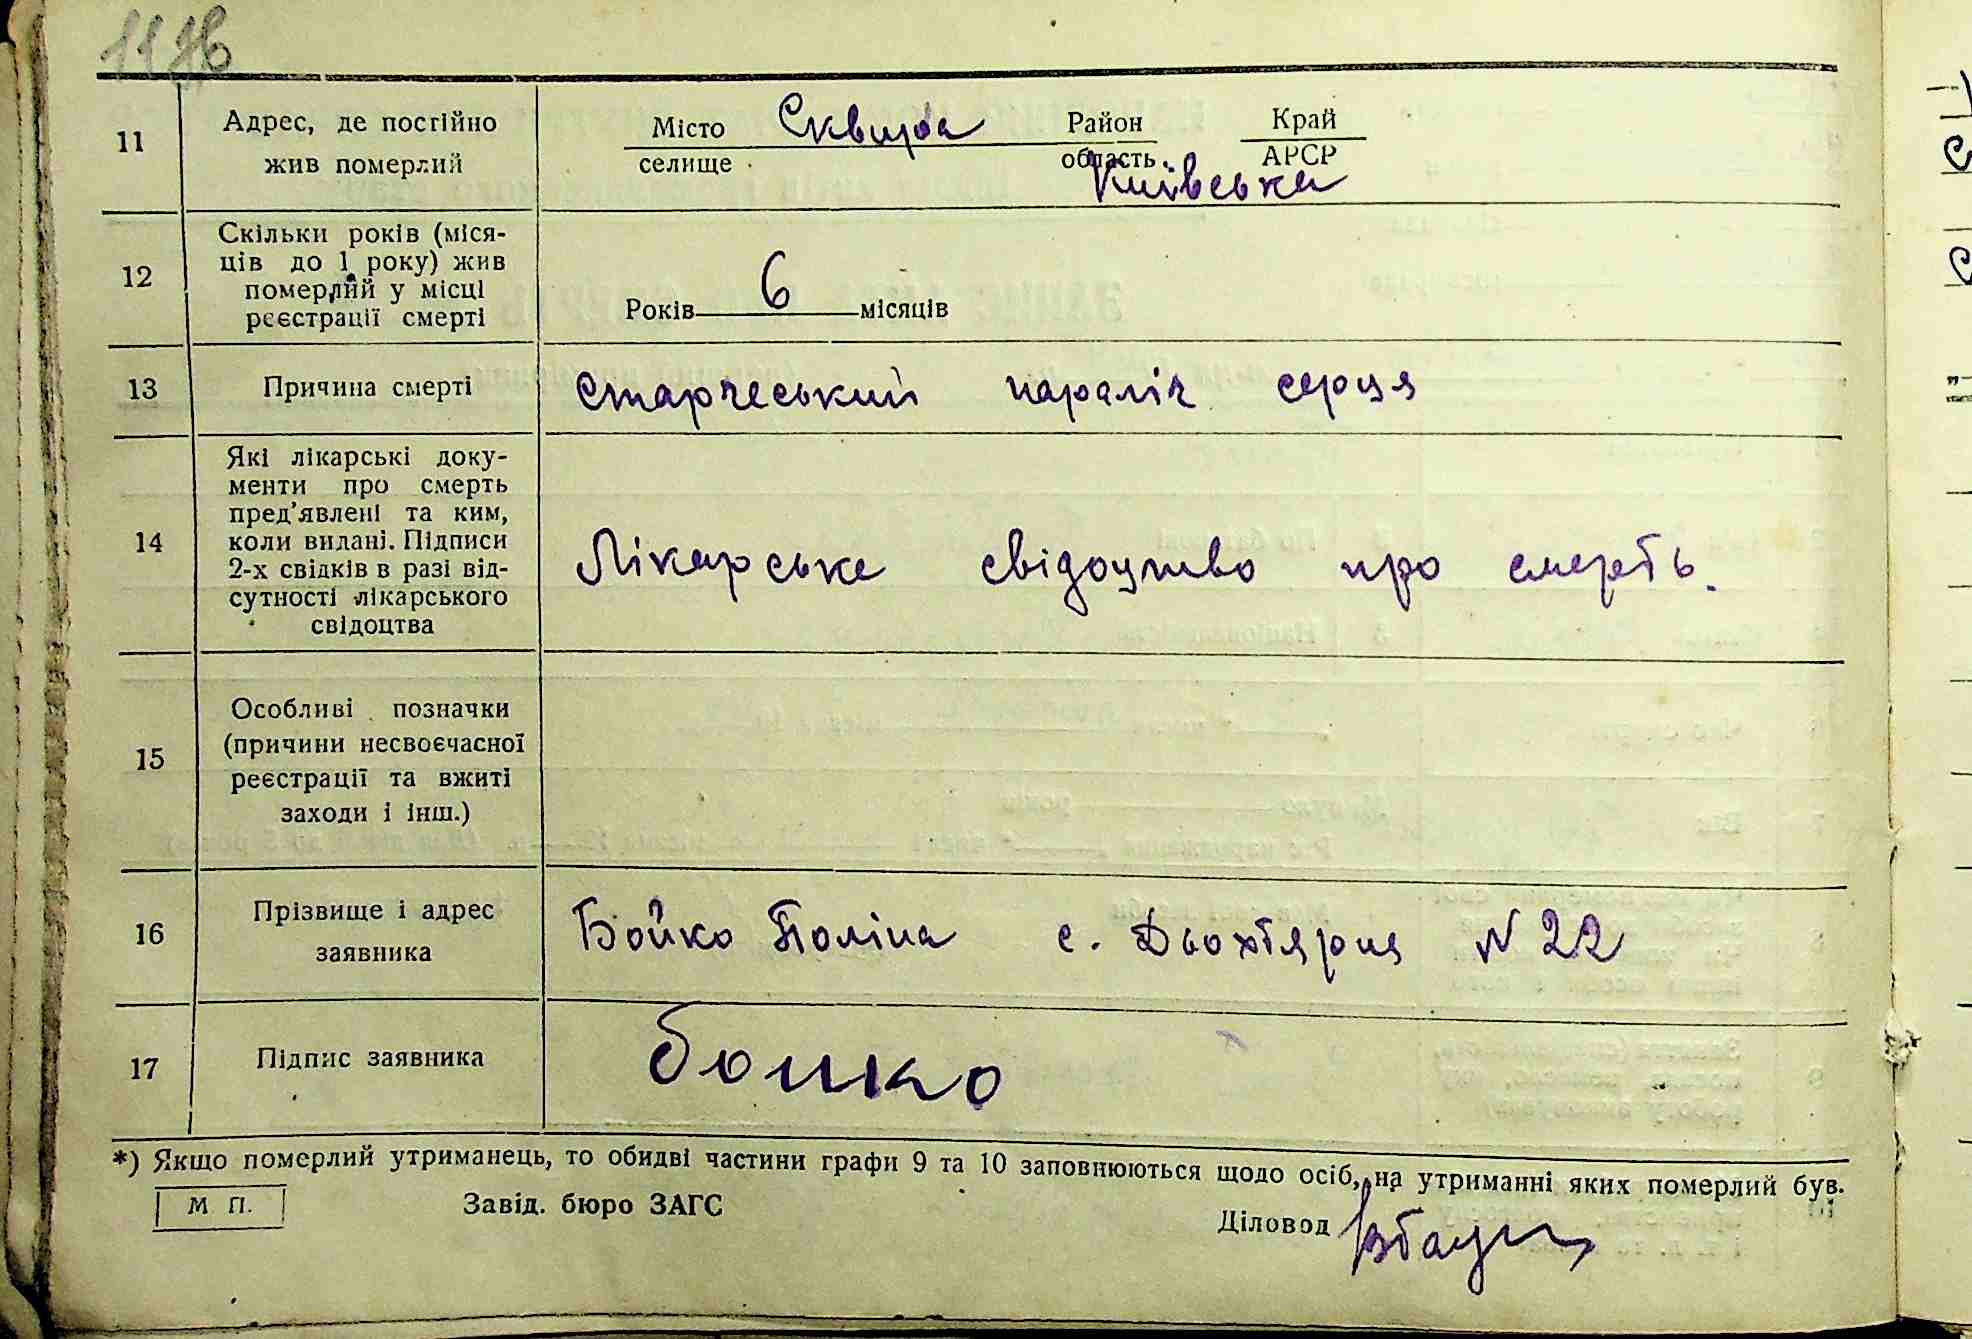 11 Адрес, де постійно Місто Сквира Район Край
жив померлий селище область Київська АРСР
12 Скільки років (міся-
ців до 1 року) жив
померлий у місці
реєстрації смерті Років 6 місяців
13 Причина смерті старческький параліч серця
14 Які лікарські доку-
менти про смерть
пред'явлені та ким,
коли видані. Підписи
2-х свідків в разі від-
сутності лікарського
свідоцтва
Лікарське свідоцтво про смерть.
15 Особливі позначки
(причини несвоєчасної
реєстрації та вжиті
заходи і інш.)
16 Прізвище і адрес
заявника
Бойко Поліна с. Дьохтярця N 22
17 Підпис заявника Бойко
*) Якщо померлий утриманець, то обидві частини графи 9 та 10 заповнюються щодо осіб, на утриманні яких померлий був.
М П. Завід. бюро ЗАГС Діловод